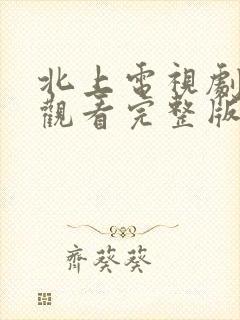 北上電視劇
觀看完整版
齊葵葵